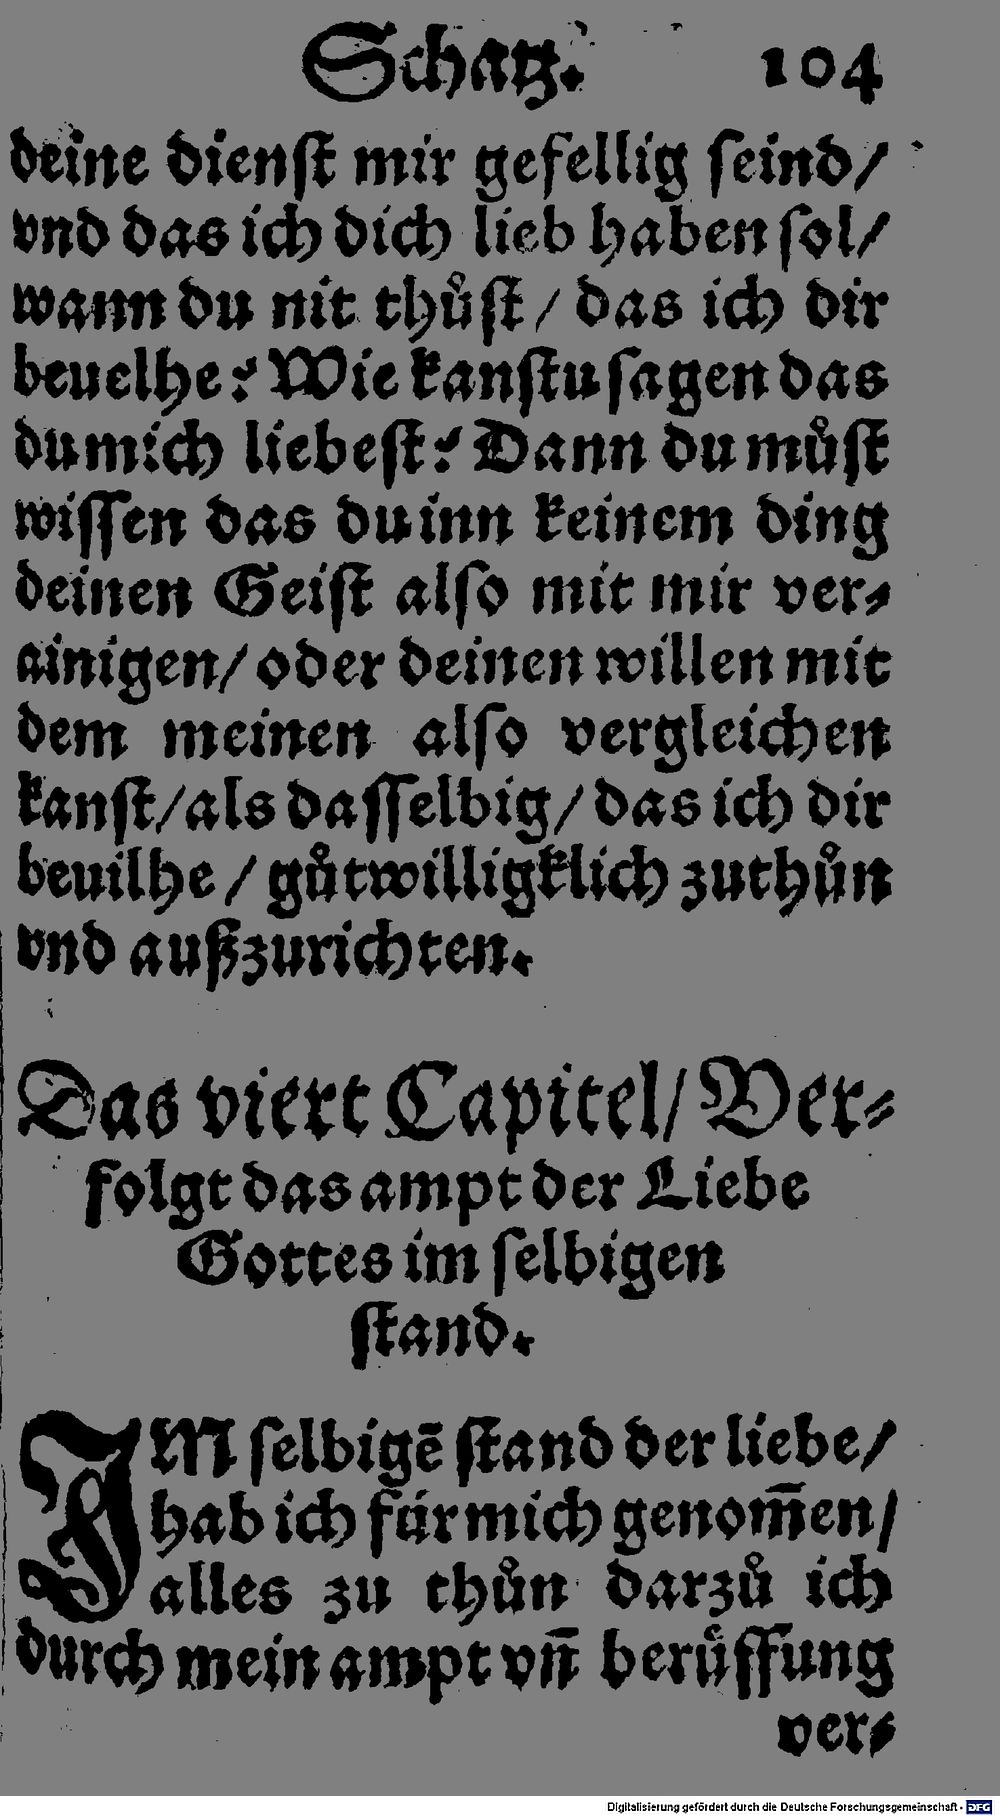 Schatz. 104
deine dienſt mir gefellig ſeind/
vnd das ich dich lieb haben ſol/
wann du nit thůſt / das ich dir
beuelhe? Wie kanſtu ſagen das
du mich liebeſt? Dann du můſt
wiſſen das du inn keinem ding
deinen Geiſt alſo mit mir ver⸗
ainigen/ oder deinen willen mit
dem meinen alſo vergleichen
kanſt/ als daſſelbig/ das ich dir
beuilhe / gůtwilligklich zuthůn
vnd außzurichten.
Das viert Capitel/ Ver⸗
folgt das ampt der Liebe
Gottes im ſelbigen
ſtand.
IM ſelbigē ſtand der liebe/
hab ich für mich genom̃en/
alles zu thůn darzů ich
durch mein ampt vn̄ berůͤffung
ver⸗
Digitalisierung gefördert durch die Deutsche Forschungsgemeinschaft - DFG